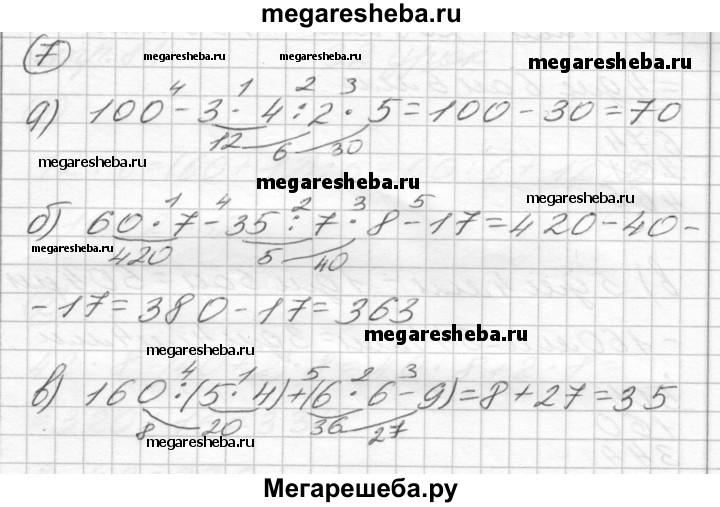 megaresheba.ru
7
megaresheba.ru megaresheba.ru megaresheba.ru
4 1 2 3
а) 100 - 3 · 4 : 2 · 5 = 100 - 30 = 70
12 6 30
megaresheba.ru
megaresheba.ru megaresheba.ru
1 4 2 3 5
б) 60 · 7 - 35 : 7 · 8 - 17 = 420 - 40 -
megaresheba.ru
420 5 40
- 17 = 380 - 17 = 363
megaresheba.ru
megaresheba.ru
4 1 5 2 3
в) 160 : (5 · 4) + (6 · 6 - 9) = 8 + 27 = 35
8 20 36 27
megaresheba.ru megaresheba.ru
Мегарешеба.ру